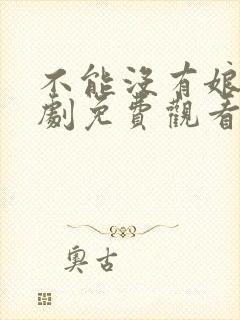 不能沒有娘
劇免費觀看
奧古